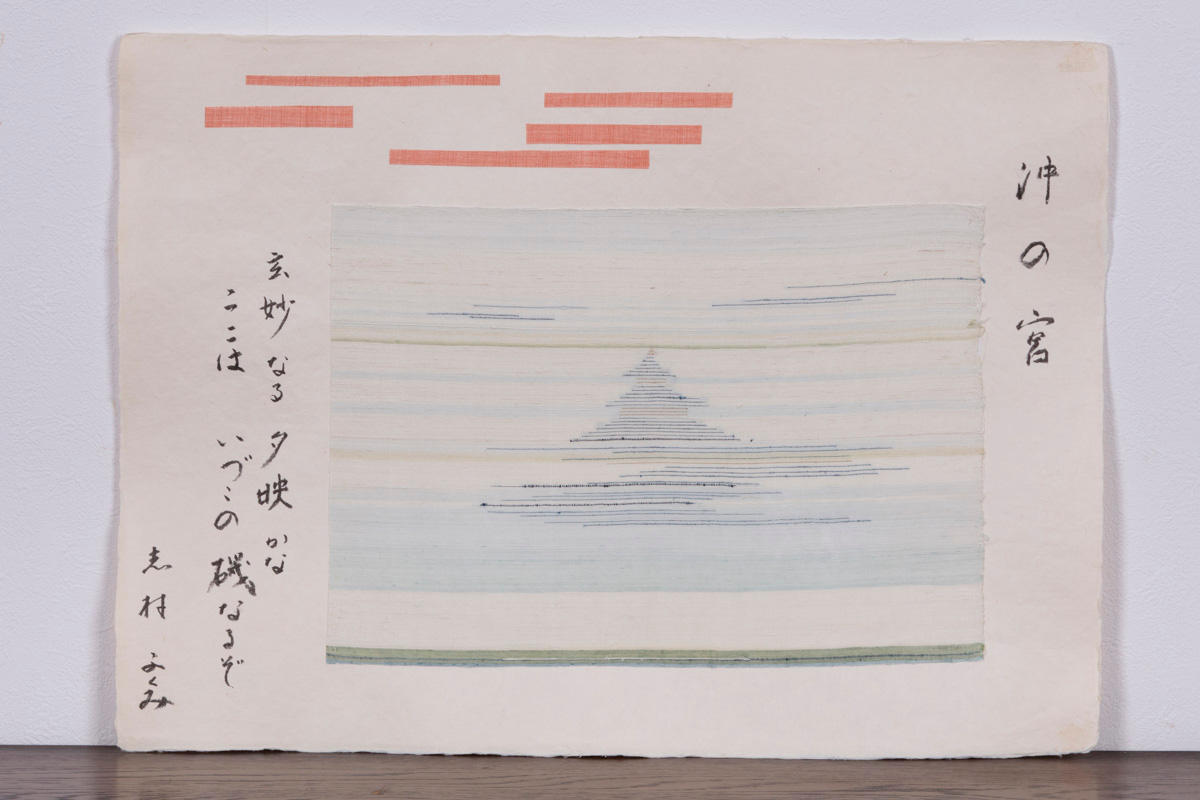 沖の宮
玄妙なる夕映かな
ここはいづこの磯なるぞ
志村ふくみ